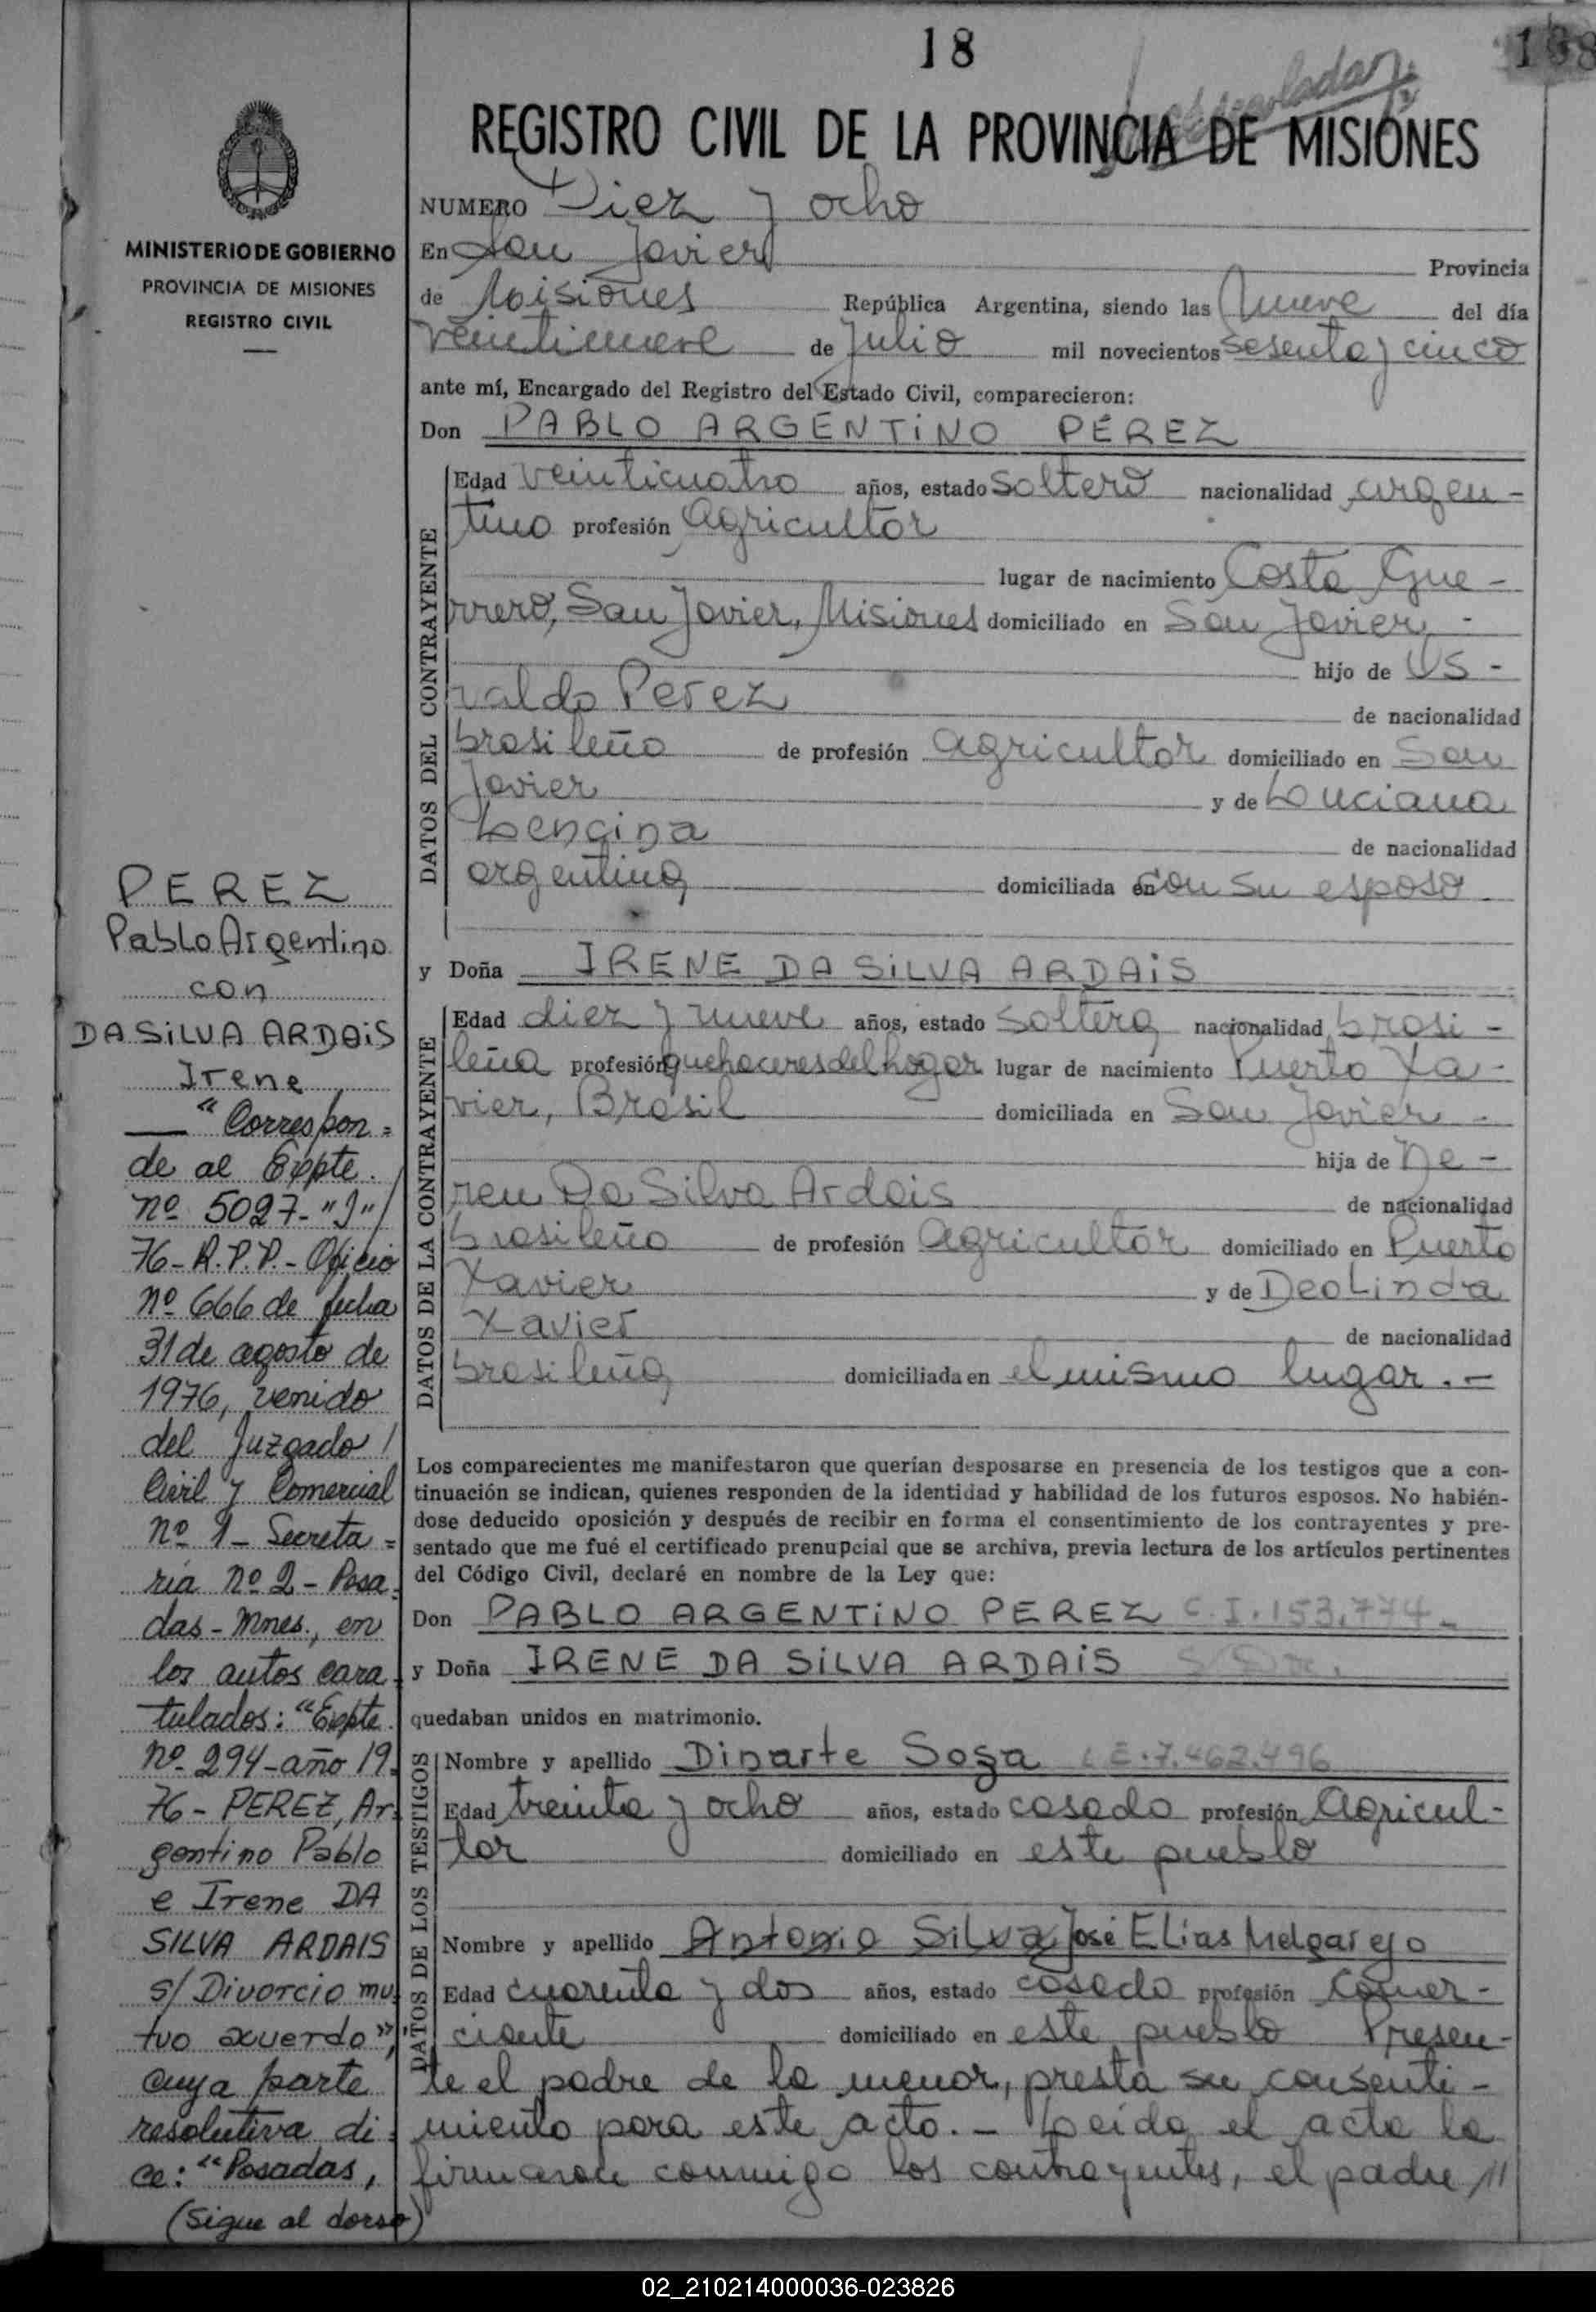 18
188
REGISTRO CIVIL DE LA PROVINCIA DE MISIONES
MINISTERIO DE GOBIERNO
PROVINCIA DE MISIONES
REGISTRO CIVIL
NUMERO Diez y ocho
En San Javier Provincia
de Misiones República Argentina, siendo las nueve del día
veintinueve de Julio mil novecientos sesenta y cinco
ante mí, Encargado del Registro del Estado Civil, comparecieron:
Don PABLO ARGENTINO PÉREZ
DATOS DEL CONTRAYENTE
Edad veinticuatro años, estado soltero nacionalidad argen-
tino profesión agricultor
lugar de nacimiento Costa Gue-
rrero, San Javier, Misiones domiciliado en San Javier -
hijo de Us -
valdo Perez de nacionalidad
brasileño de profesión agricultor domiciliado en San
Javier y de Luciana
Lencina de nacionalidad
argentina domiciliada en con su esposo
y Doña IRENE DA SILVA ARDAIS
DATOS DE LA CONTRAYENTE
Edad diez y nueve años, estado soltera nacionalidad brasi -
leña profesión quehaceres del hogar lugar de nacimiento Puerto Xa -
vier, Brasil domiciliada en San Javier -
hija de Ne -
reu Da Silva Ardais de nacionalidad
brasileño de profesión agricultor domiciliado en Puerto
Xavier y de Deolinda
Xavier de nacionalidad
brasileña domiciliada en el mismo lugar . -
Los comparecientes me manifestaron que querían desposarse en presencia de los testigos que a con-
tinuación se indican, quienes responden de la identidad y habilidad de los futuros esposos. No habién-
dose deducido oposición y después de recibir en forma el consentimiento de los contrayentes y pre-
sentado que me fué el certificado prenupcial que se archiva, previa lectura de los artículos pertinentes
del Código Civil, declaré en nombre de la Ley que:
Don PABLO ARGENTINO PEREZ C. I. 153.774.-
y Doña IRENE DA SILVA ARDAIS
quedaban unidos en matrimonio.
DATOS DE LOS TESTIGOS
Nombre y apellido Dinarte Sosa L E. 7.462.496
Edad treinta y ocho años, estado casado profesión Agricul-
tor domiciliado en este pueblo
Nombre y apellido Antonio Silva José Elias Melgarejo
Edad cuarenta y dos años, estado casado profesión Comer-
ciante domiciliado en este pueblo Presen-
te el padre de la menor, presta su consenti -
miento para este acto. - Leida el acta la
firmaron conmigo los contrayentes, el padre //
PEREZ
Pablo Argentino
con
DA SILVA ARDAIS
Irene
— "Correspon =
de al Expte.
nº 5027- "J"/
76- R.P.P.- Oficio
nº 666 de fecha
31 de agosto de
1976, venido
del Juzgado /
Civil y Comercial
nº 1 - Secreta =
ria nº 2 - Posa
das - Mnes., en
los autos cara
tulados: "Expte.
nº 294-año 19
76 - PEREZ, Ar
gentino Pablo
e Irene DA
SILVA ARDAIS
s/ Divorcio mu
tuo acuerdo",
cuya parte
resolutiva di
ce: "Posadas,
(Sigue al dorso)
02_210214000036-023826